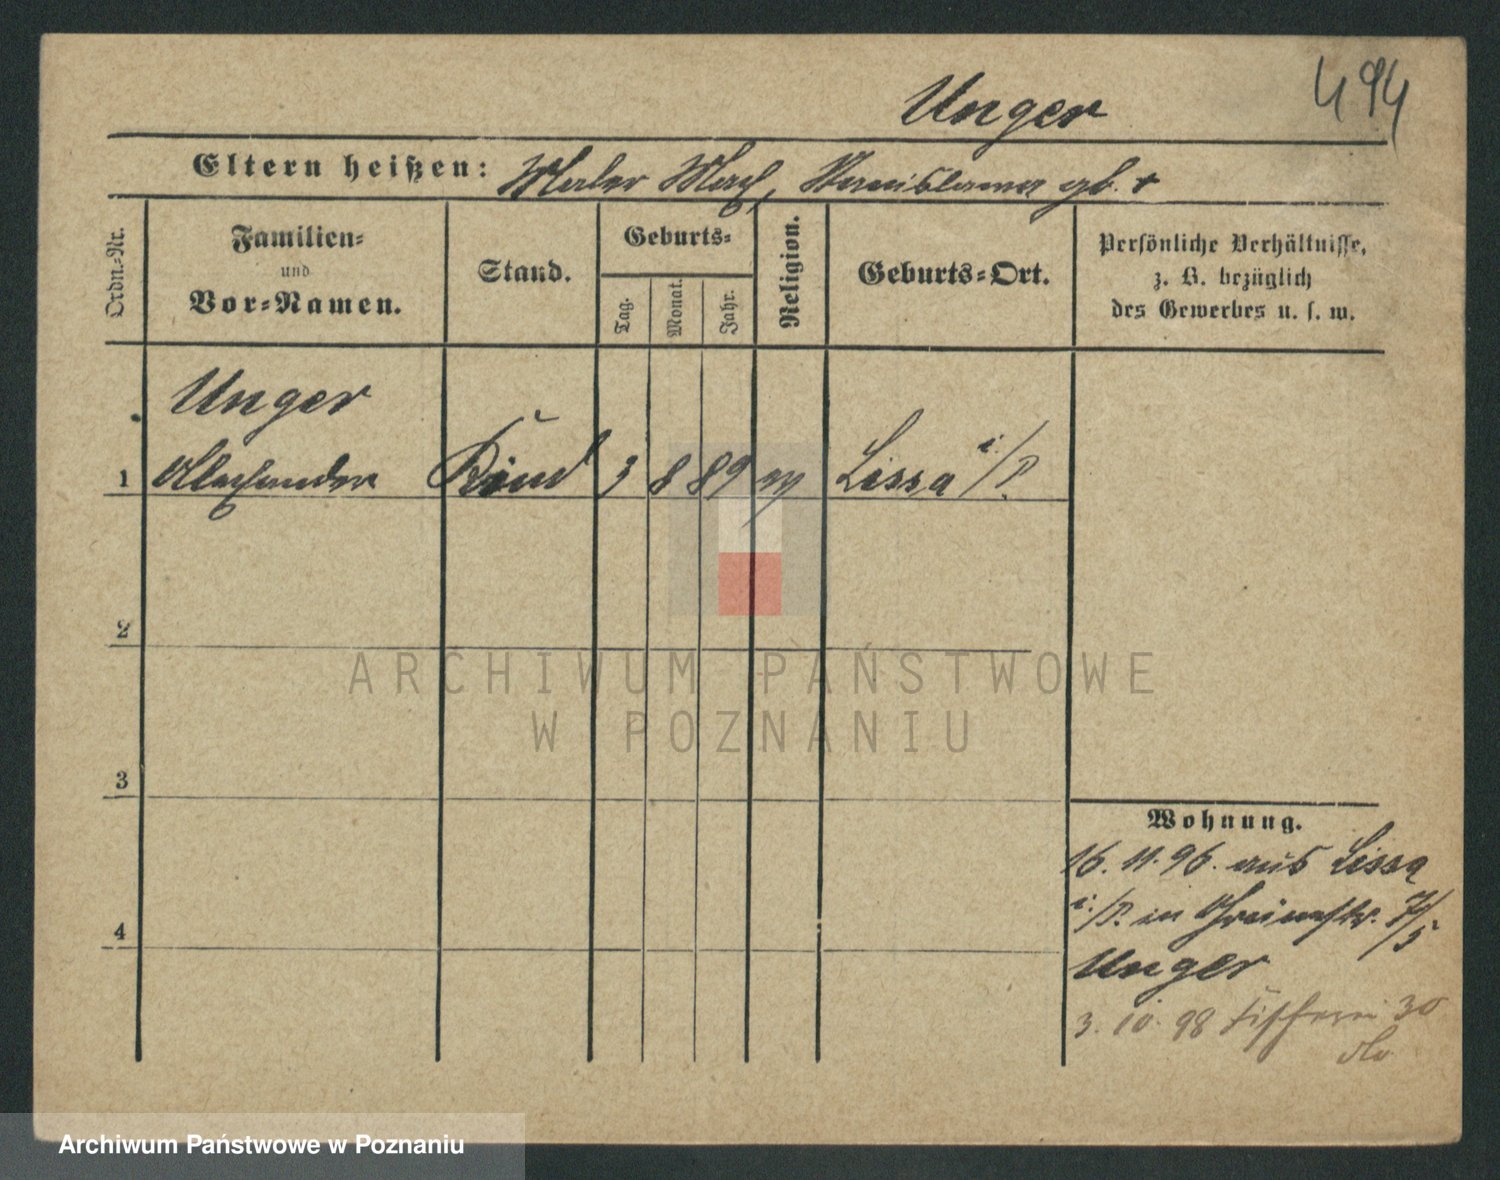 494
Unger
Eltern heißen: Maler Max, Stanislawa gb. +
Ordn.-Nr.
Familien-
und
Vor-Namen.
Stand.
Geburts-
Tag.
Monat.
Jahr.
Religion.
Geburts-Ort.
Persönliche Verhältnisse,
z. B. bezüglich
des Gewerbes u. s. w.
Unger
1 Alexander Kind 3 8 89 Lissa i/P.
2
3
4
Wohnung.
16. 11. 96. aus Lissa
i./P. in 7/5
Unger
3. 10. 98 Fischerei 30
ARCHIWUM PAŃSTWOWE
W POZNANIU
Archiwum Państwowe w Poznaniu